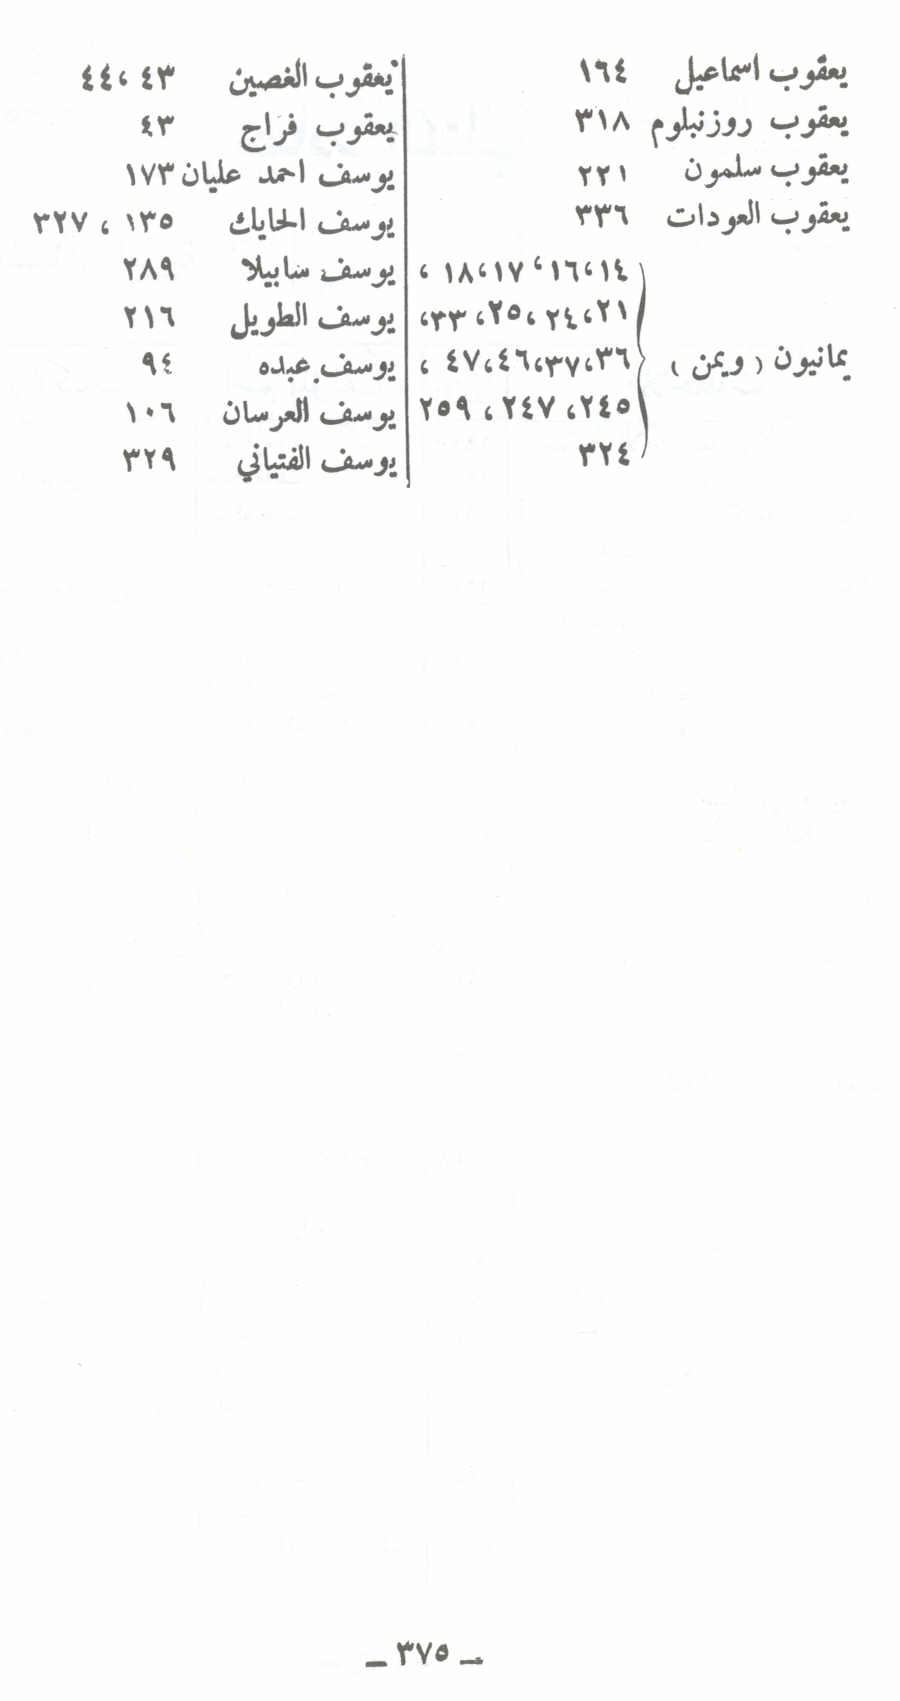 يعقوب اسماعيل ١٦٤
يعقوب روزنبلوم ٣١٨
يعقوب سلمون ٢٢١
يعقوب العودات ٣٣٦
١٤،١٦،١٧،١٨،
٢١،٢٤،٢٥،٣٣،
يمانيون (ويمن) ٣٦،٣٧،٤٦،٤٧،
٢٤٥، ٢٤٧، ٢٥٩
٣٢٤
يعقوب الغصين ٤٣ ،٤٤
يعقوب فراج ٤٣
يوسف احمد عليان ١٧٣
يوسف الحايك ١٣٥ ، ٣٢٧
يوسف سابيلا ٢٨٩
يوسف الطويل ٢١٦
يوسف عبده ٩٤
يوسف العرسان ١٠٦
يوسف الفتياني ٣٢٩
ـ ٣٧٥ ـ